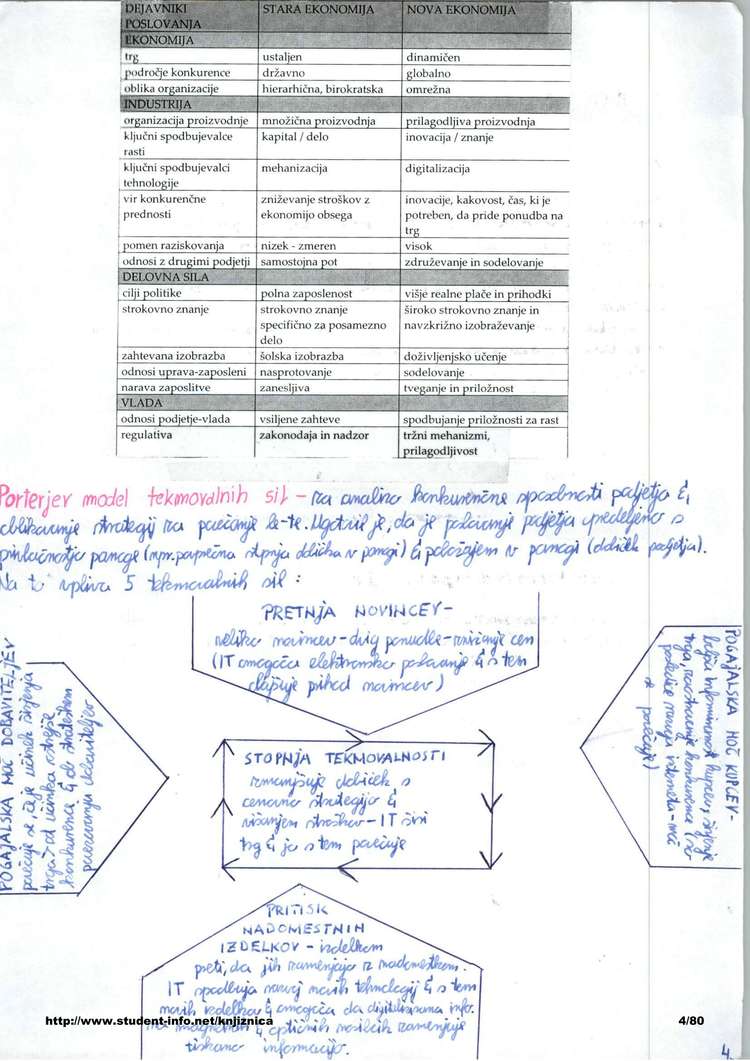 DEJAVNIKI POSLOVANJA | STARA EKONOMIJA | NOVA EKONOMIJA
EKONOMIJA
trg | ustaljen | dinamičen
področje konkurence | državno | globalno
oblika organizacije | hierarhična, birokratska | omrežna
INDUSTRIJA
organizacija proizvodnje | množična proizvodnja | prilagodljiva proizvodnja
ključni spodbujevalce rasti | kapital / delo | inovacija / znanje
ključni spodbujevalci tehnologije | mehanizacija | digitalizacija
vir konkurenčne prednosti | zniževanje stroškov z ekonomijo obsega | inovacije, kakovost, čas, ki je potreben, da pride ponudba na trg
pomen raziskovanja | nizek - zmeren | visok
odnosi z drugimi podjetji | samostojna pot | združevanje in sodelovanje
DELOVNA SILA
cilji politike | polna zaposlenost | višje realne plače in prihodki
strokovno znanje | strokovno znanje specifično za posamezno delo | široko strokovno znanje in navzkrižno izobraževanje
zahtevana izobrazba | šolska izobrazba | doživljenjsko učenje
odnosi uprava-zaposleni | nasprotovanje | sodelovanje
narava zaposlitve | zanesljiva | tveganje in priložnost
VLADA
odnosi podjetje-vlada | vsiljene zahteve | spodbujanje priložnosti za rast
regulativa | zakonodaja in nadzor | tržni mehanizmi, prilagodljivost
Porterjev model tekmovalnih sil - za analizo konkurenčne sposobnosti podjetja &
oblikovanje strategij za povečanje le-te. Ugotovil je, da je poslovanje podjetja opredeljeno s
privlačnostjo panoge (npr. povprečna stopnja dobička v panogi) & položajem v panogi (dobiček podjetja).
Na to vpliva 5 tekmovalnih sil:
PRETNJA NOVINCEV -
veliko novincev - dvig ponudbe - znižanje cen
(IT omogoča elektronsko poslovanje & s tem
olajšuje prihod novincev)
POGAJALSKA MOČ DOBAVITELJEV
POGAJALSKA MOČ KUPCEV -
boljša informiranost kupcev, širjenje
trga, zaostrovanje konkurence (
razvoja interneta - moč
se povečuje)
STOPNJA TEKMOVALNOSTI
zmanjšuje dobiček s
cenovno strategijo &
višanjem stroškov - IT širi
trg & jo s tem povečuje
PRITISK
NADOMESTNIH
IZDELKOV - izdelkom
preti, da jih zamenjajo z nadomestkom.
IT spodbuja razvoj novih tehnologij & s tem
novih izdelkov & omogoča da digitalizirana info.
na magnetnih & optičnih nosilcih zamenjuje
tiskano informacijo.
http://www.student-info.net/knjiznica
4/80
4.